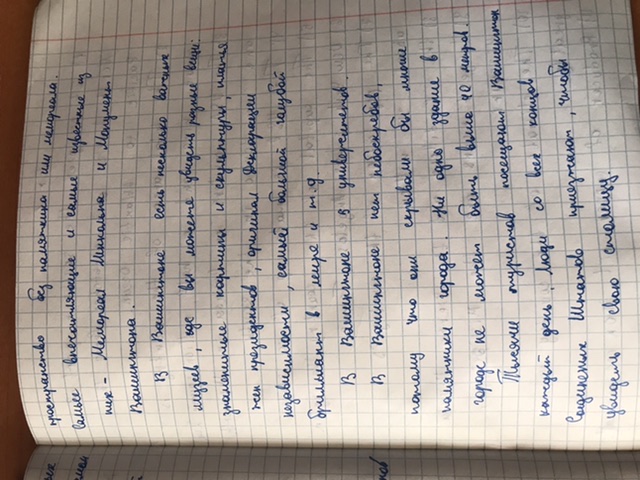 пространство без памятника или мемориала.
Самые впечатляющие и самые известные из
них - Мемориал Линкольна и Монумент
Вашингтона.
В Вашингтоне есть несколько важных
музеев, где вы можете увидеть разные вещи:
знаменитые картины и скульптуры, платья
жен президентов, оригинал Декларации
независимости, самый большой голубой
бриллиант в мире и т.д.
В Вашингтоне 5 университетов.
В Вашингтоне нет небоскребов,
потому что они скрывали бы многие
памятники города. Ни одно здание в
городе не может быть выше 40 метров.
Тысячи туристов посещают Вашингтон
каждый день. Люди со всех концов
Соединенных Штатов приезжают, чтобы
увидеть свою столицу.